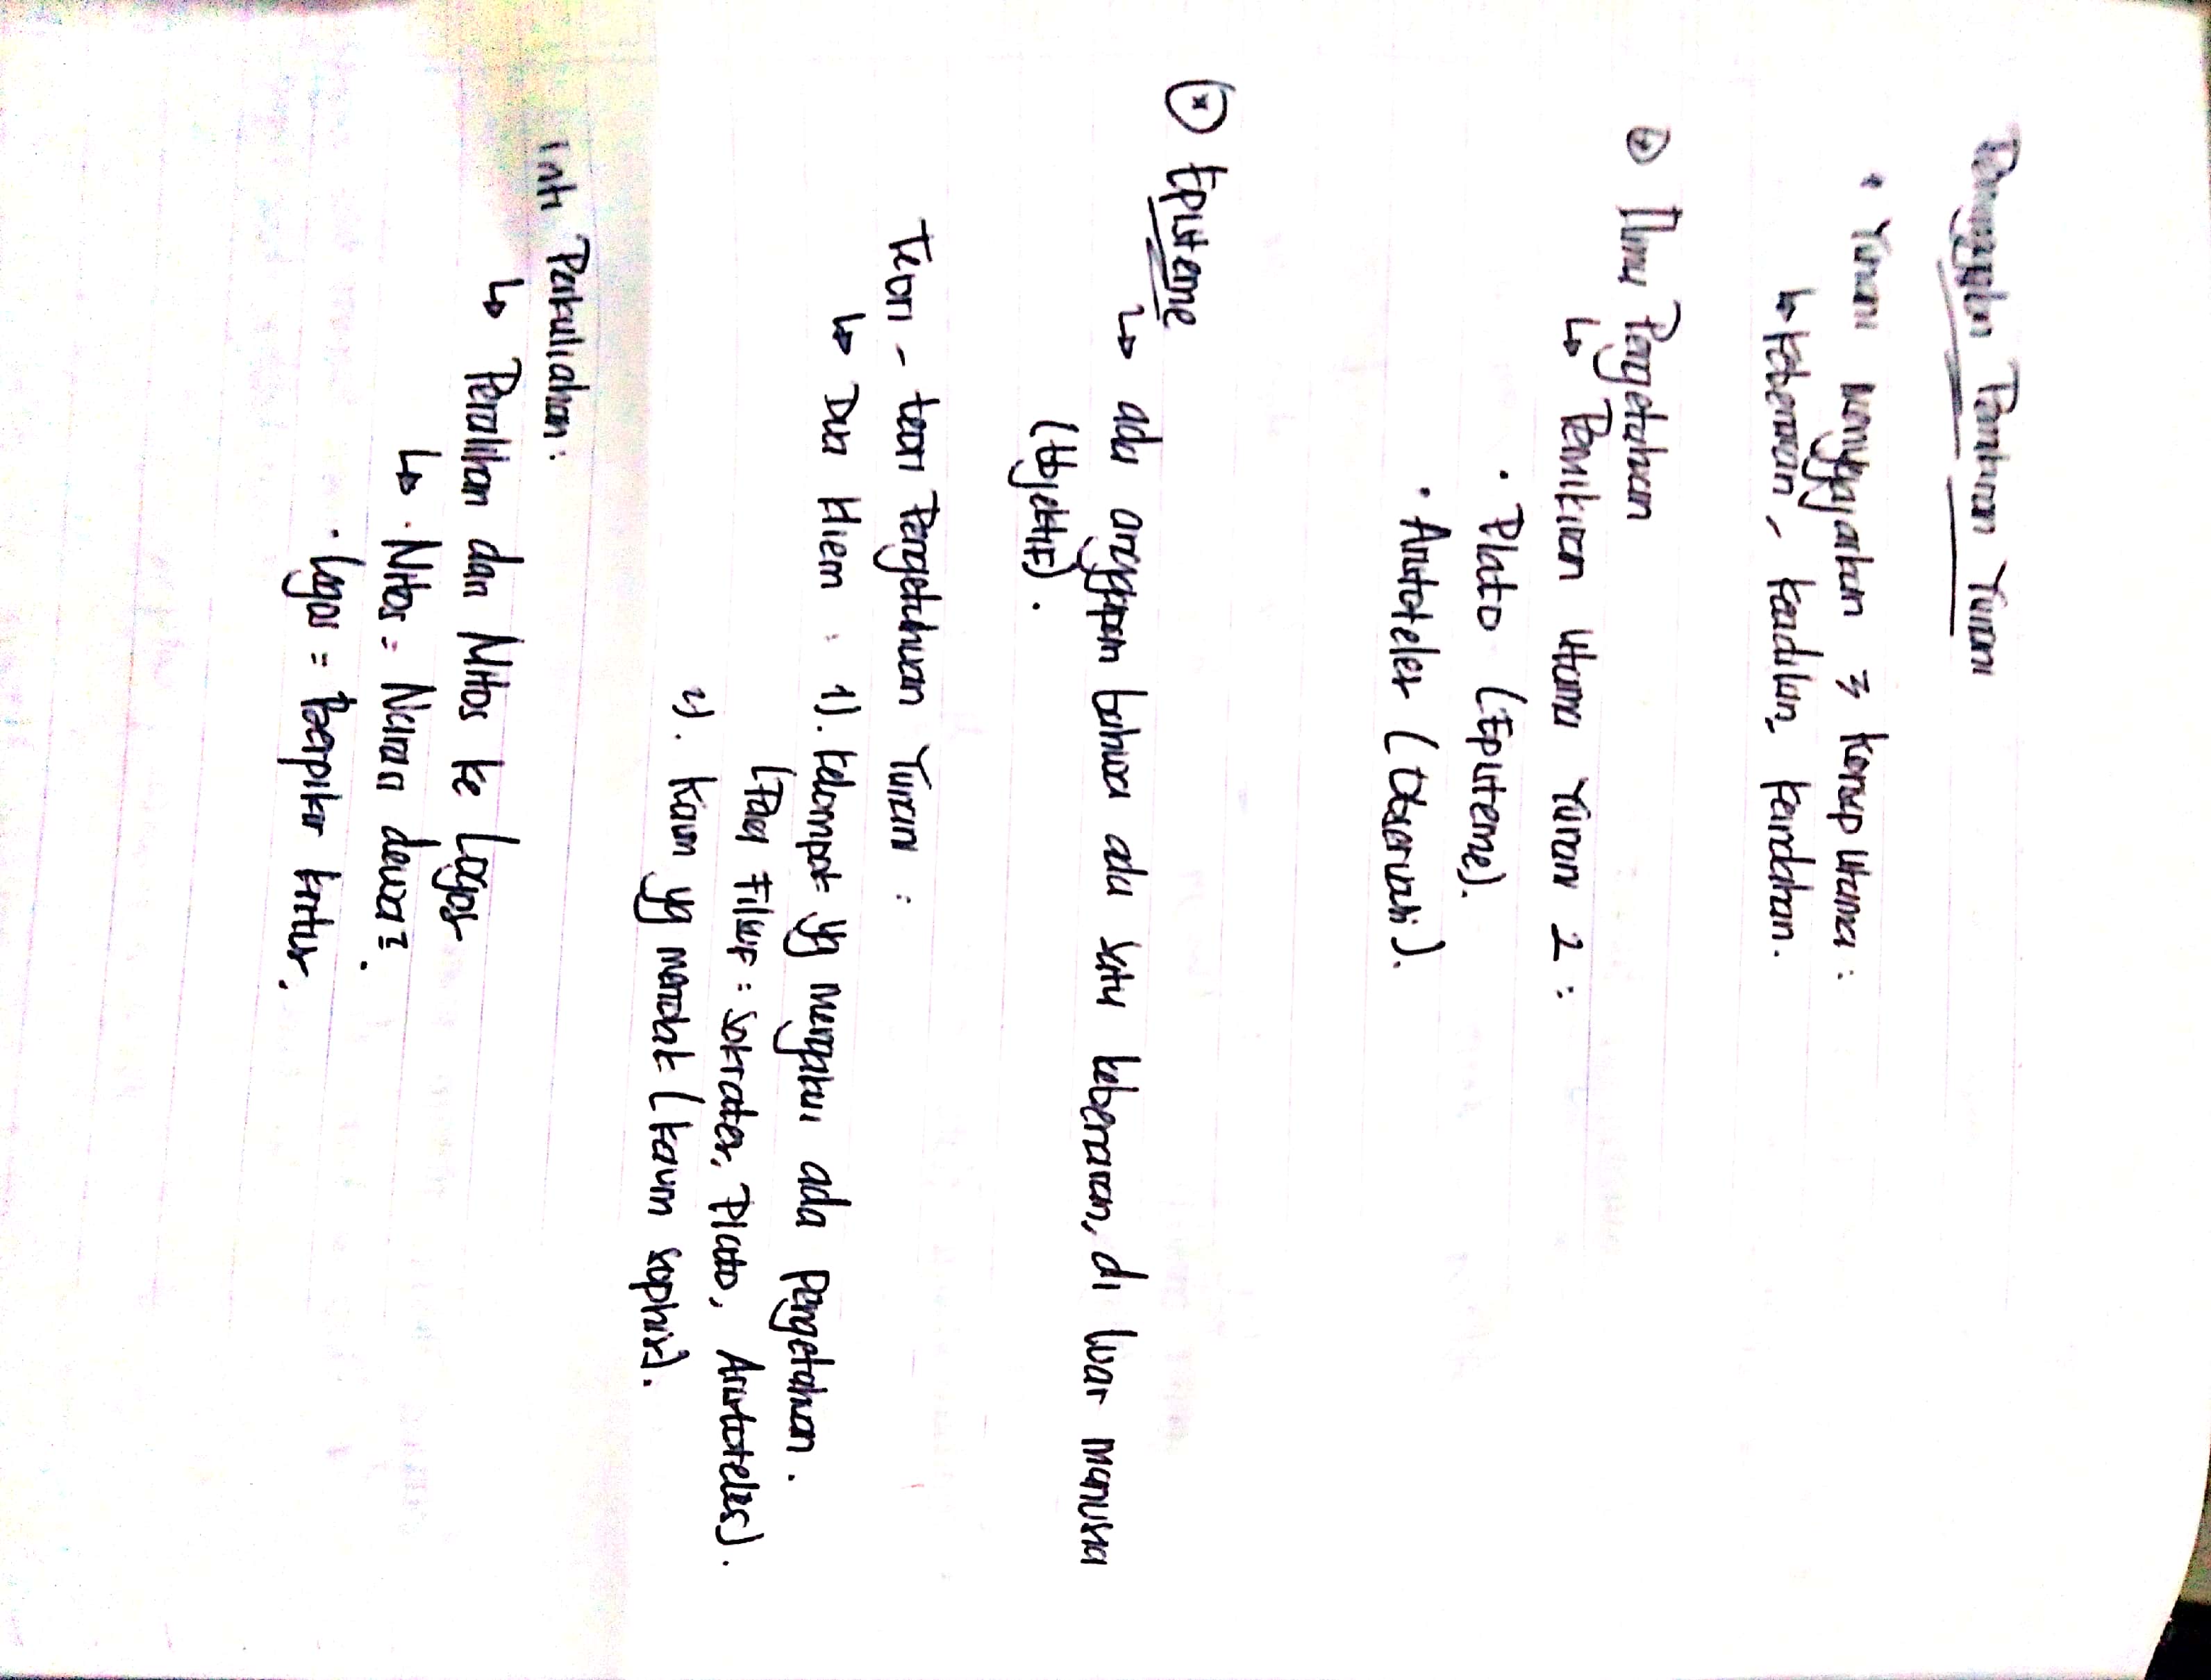 Peninggalan Pemikiran Yunani
• Yunani menyajikan 3 konsep utama :
↳ kebenaran, keadilan, keindahan.
Ilmu Pengetahuan
↳ Pemikiran utama Yunani 2 :
• Plato (Episteme).
• Aristoteles (Observasi).
Episteme
↳ ada anggapan bahwa ada satu kebenaran, di luar manusia
(Objektif).
Teori - teori Pengetahuan Yunani :
↳ Dua klien : 1). kelompok yg mengakui ada pengetahuan.
(Para Filsuf = Sokrates, Plato, Aristoteles).
2). Kaum yg menolak (kaum sophis).
Inti Perkuliahan :
↳ Peralihan dari Mitos ke Logos
↳ • Mitos = Narasi dewa².
• Logos = Berpikir kritis.